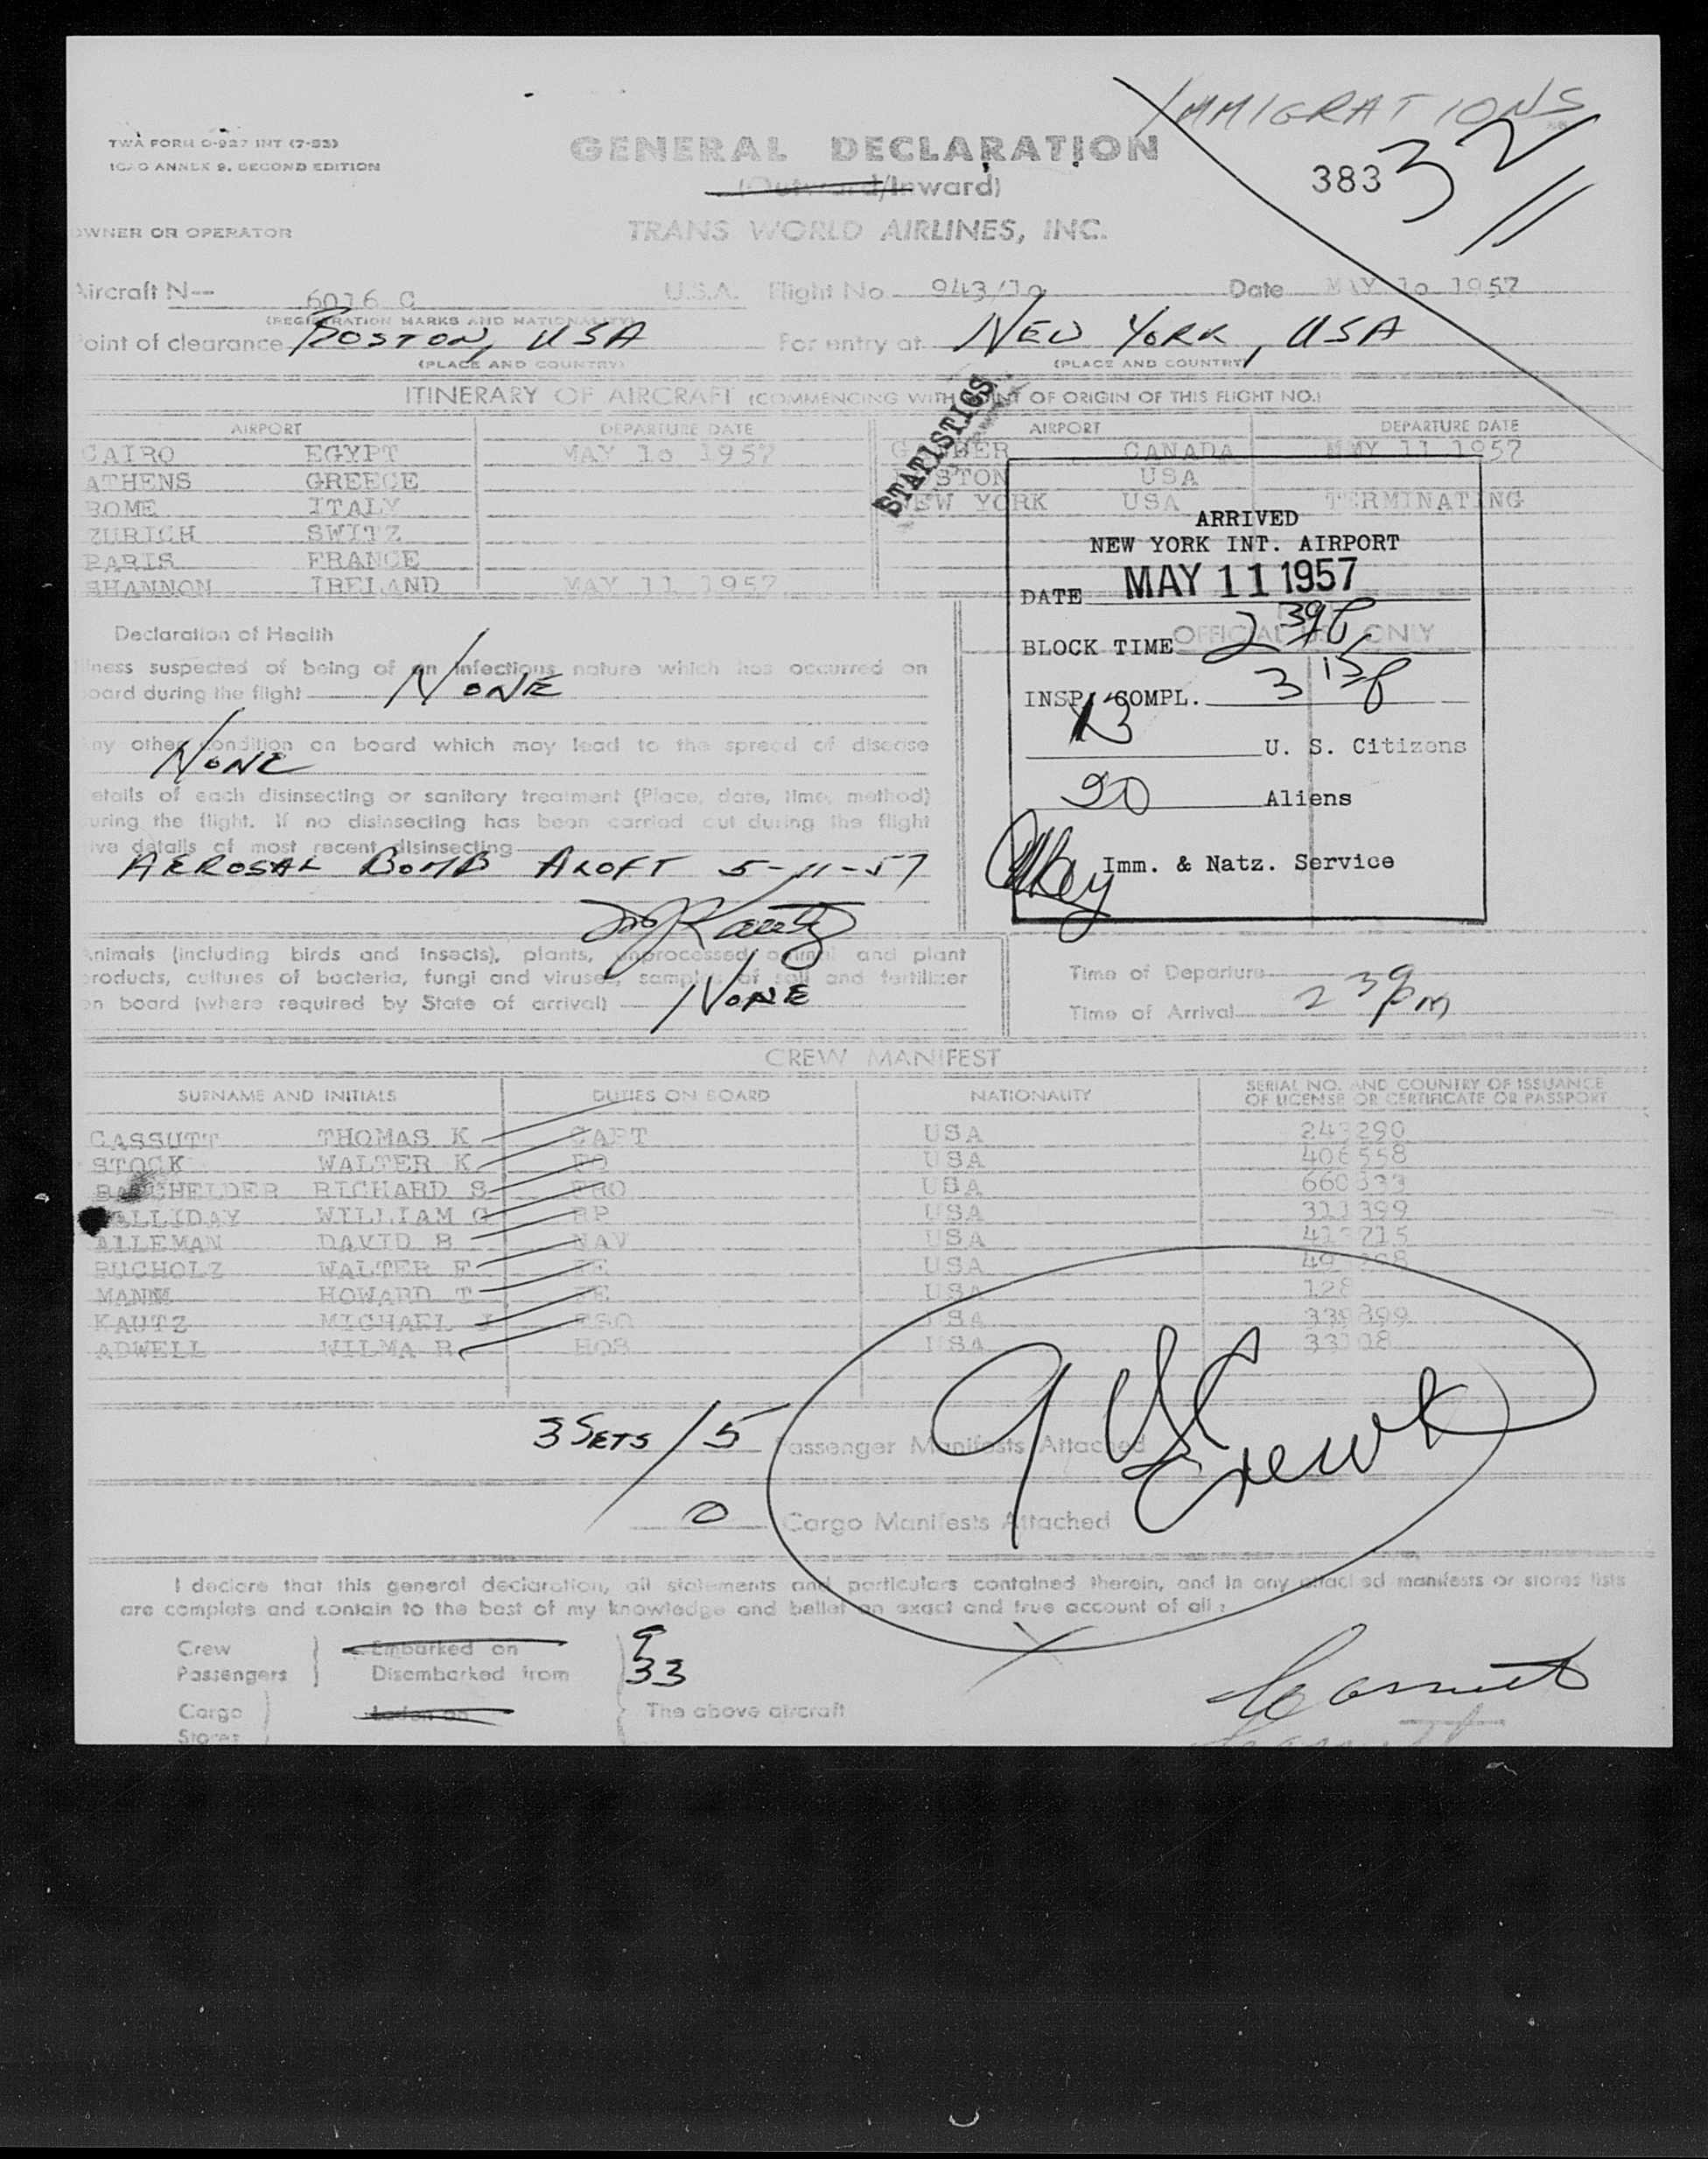 IMMIGRATIONS
TWA FORM O-927 INT (7-53)
ICAO ANNEX 9, SECOND EDITION
GENERAL DECLARATION
(Outward/Inward)
383
32
11
OWNER OR OPERATOR
TRANS WORLD AIRLINES, INC.
Aircraft N-- 6016 C U.S.A. Flight No 943/10 Date MAY 10 1957
(REGISTRATION MARKS AND NATIONALITY)
Point of clearance BOSTON, USA For entry at NEW YORK, USA
(PLACE AND COUNTRY) (PLACE AND COUNTRY)
STATISTICS
ITINERARY OF AIRCRAFT (COMMENCING WITH POINT OF ORIGIN OF THIS FLIGHT NO.)
AIRPORT DEPARTURE DATE AIRPORT DEPARTURE DATE
CAIRO EGYPT MAY 10 1957 GANDER CANADA MAY 11 1957
ATHENS GREECE BOSTON USA
ROME ITALY NEW YORK USA TERMINATING
ZURICH SWITZ
PARIS FRANCE
SHANNON IRELAND MAY 11 1957
ARRIVED
NEW YORK INT. AIRPORT
DATE MAY 11 1957
OFFICIAL USE ONLY
BLOCK TIME 2 39p
INSP. COMPL. 3 15p
13 U. S. Citizens
20 Aliens
Imm. & Natz. Service
Declaration of Health
Illness suspected of being of an infectious nature which has occurred on
board during the flight NONE
Any other condition on board which may lead to the spread of disease
NONE
Details of each disinsecting or sanitary treatment (Place, date, time, method)
during the flight. If no disinsecting has been carried out during the flight
give details of most recent disinsecting
AEROSAL BOMB ALOFT 5-11-57
MJKautz
Animals (including birds and insects), plants, unprocessed animal and plant
products, cultures of bacteria, fungi and viruses, samples of soil and fertilizer
on board (where required by State of arrival) NONE
Time of Departure
Time of Arrival 2 39pm
CREW MANIFEST
SURNAME AND INITIALS DUTIES ON BOARD NATIONALITY SERIAL NO. AND COUNTRY OF ISSUANCE
OF LICENSE OR CERTIFICATE OR PASSPORT
CASSUTT THOMAS K CAPT USA 243290
STOCK WALTER K FO USA 406558
BATCHELDER RICHARD S FRO USA 660333
HALLIDAY WILLIAM G RP USA 311399
ALLEMAN DAVID B NAV USA
BUCHOLZ WALTER F FE USA
MANN HOWARD T FE USA 128
KAUTZ MICHAEL J FSO USA 339899
ADWELL WILMA R HOS USA
3 SETS / 5 Passenger Manifests Attached
9 US Crew
0 Cargo Manifests Attached
I declare that this general declaration, all statements and particulars contained therein, and in any attached manifests or stores lists
are complete and contain to the best of my knowledge and belief an exact and true account of all:
Crew Embarked on 9
Passengers Disembarked from 33
Cargo Laden on The above aircraft
Stores
Cassutt